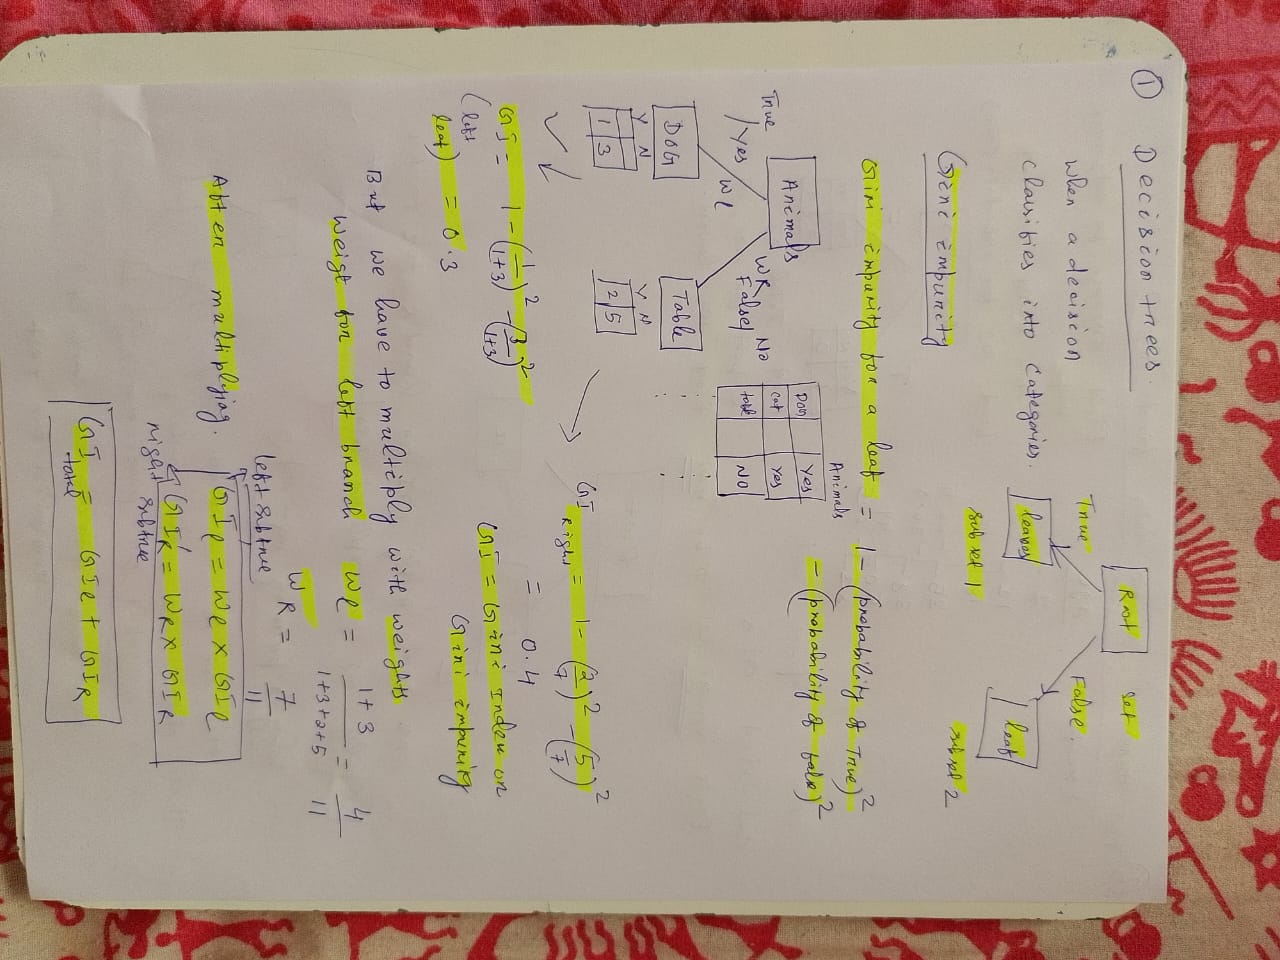 ① Decision trees.
when a decision
classifies into categories.
Root
set
True
False.
leaves
leaf
subset 1
subset 2
Gini impurity
Gini impurity for a leaf = 1 - (probability of True)²
- (probability of false)²
Animals
True / Yes
Wl
WR
False / No
DOG
Table
Y N
1 3
Y N
2 5
Animals
DOG Yes
Cat Yes
table NO
GI = 1 - (1/(1+3))² - (3/(1+3))²
(left leaf) = 0.3
GI Right = 1 - (2/7)² - (5/7)²
= 0.4
GI = Gini Index or
Gini impurity
But we have to multiply with weights
weigt for left branch Wl = (1+3)/(1+3+2+5) = 4/11
WR = 7/11
After multiplying.
left subtree
GIl = Wl x GIl
GIR = WR x GIR
right subtree
GI total = GIl + GIR